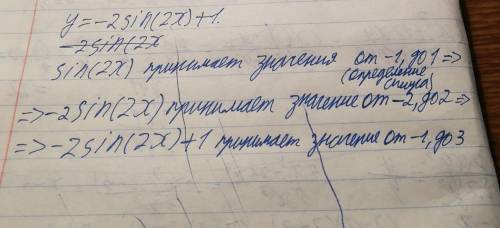 y=-2sin(2x)+1.
-2sin(2x
sin(2x) принимает значения от -1, до 1 =>
(определение синуса)
=> -2sin(2x) принимает значение от -2, до 2 =>
=> -2sin(2x)+1 принимает значение от -1, до 3